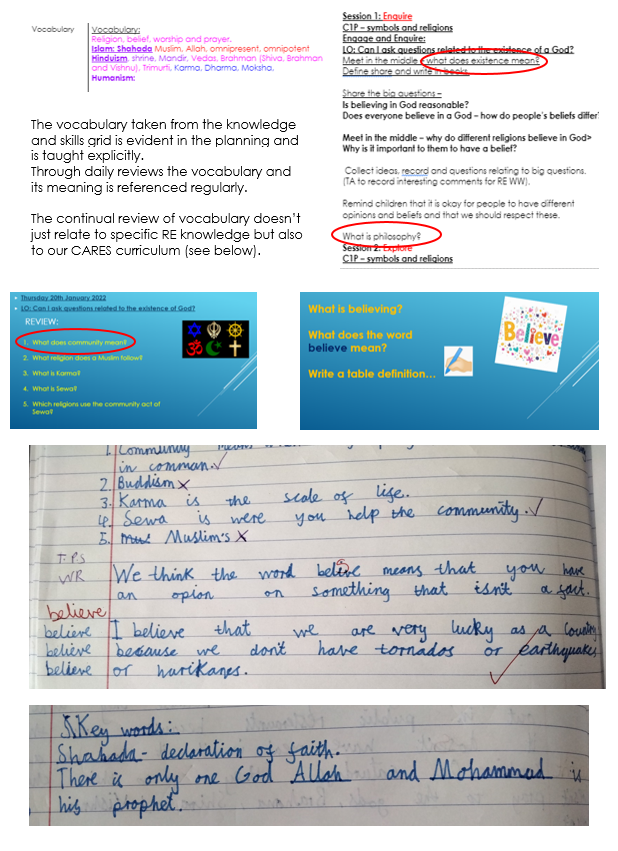 Vocabulary
Vocabulary:
Religion, belief, worship and prayer.
Islam: Shahada Muslim, Allah, omnipresent, omnipotent
Hinduism, shrine, Mandir, Vedas, Brahman (Shiva, Brahman
and Vishnu), Trimurti, Karma, Dharma, Moksha,
Humanism:
The vocabulary taken from the knowledge
and skills grid is evident in the planning and
is taught explicitly.
Through daily reviews the vocabulary and
its meaning is referenced regularly.
The continual review of vocabulary doesn't
just relate to specific RE knowledge but also
to our CARES curriculum (see below).
Session 1: Enquire
C1P – symbols and religions
Engage and Enquire:
LO: Can I ask questions related to the existence of a God?
Meet in the middle – what does existence mean?
Define share and write in books.
Share the big questions –
Is believing in God reasonable?
Does everyone believe in a God – how do people's beliefs differ
Meet in the middle – why do different religions believe in God>
Why is it important to them to have a belief?
Collect ideas, record and questions relating to big questions.
(TA to record interesting comments for RE WW).
Remind children that it is okay for people to have different
opinions and beliefs and that we should respect these.
What is philosophy?
Session 2: Explore
C1P – symbols and religions
Thursday 20th January 2022
LO: Can I ask questions related to the existence of God?
REVIEW:
1. What does community mean?
2. What religion does a Muslim follow?
3. What is Karma?
4. What is Sewa?
5. Which religions use the community act of
Sewa?
What is believing?
What does the word
believe mean?
Write a table definition…
Believe
1. Community means
in comman.
2. Buddism
3. Karma is the scale of life.
4. Sewa is were you help the community.
5. Muslim's
T.P.S
WR We think the word believe means that you have
an opion on something that isn't a fact.
believe
believe I believe that we are very lucky as a country
believe because we don't have tornados or earthquakes
believe or harikanes.
Key words:
Shahada - declaration of faith.
There is only one God Allah and Mohammad is
his prophet.